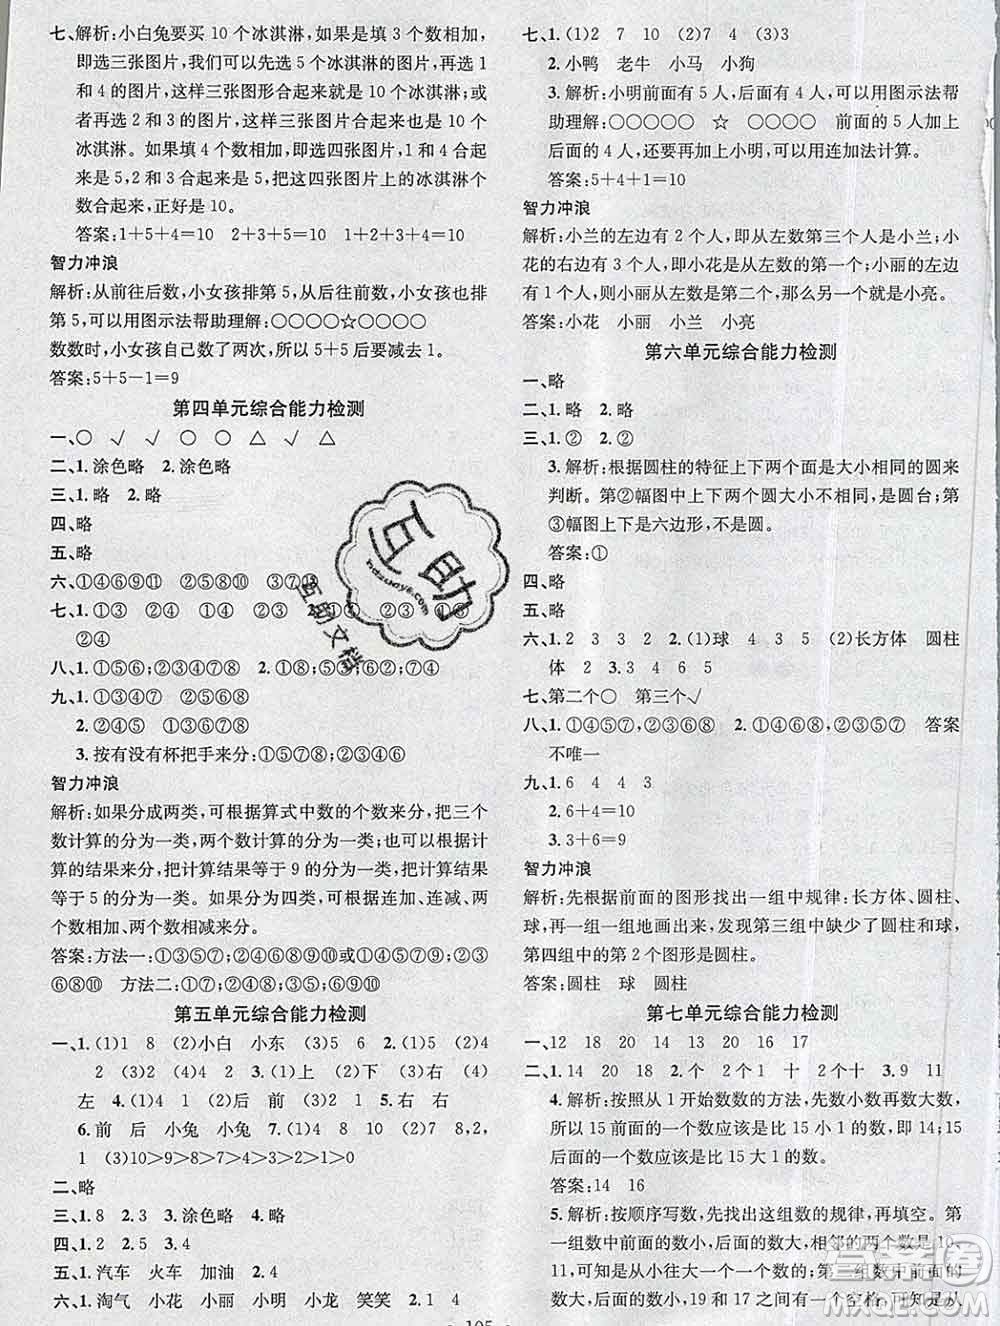 七、解析:小白兔要买 10 个冰淇淋,如果是填 3 个数相加,
即选三张图片,我们可以先选 5 个冰淇淋的,再选 1
和 4 的图片,这样三张图形合起来就是 10 个冰淇淋;或
者再选 2 和 3 的图片,这样三张图片合起来也是 10 个
冰淇淋。如果填 4 个数相加,即选四张图片,1 和 4 合起
来是 5,2 和 3 合起来是 5,把这四张图片上的冰淇淋
数合起来,正好是 10。
答案:1+5+4=10　2+3+5=10　1+2+3+4=10
智力冲浪
解析:从前往后数,小女孩排第 5,从后往前数,小女孩也排
第 5,可以用图示法帮助理解:○○○○☆○○○○
数数时,小女孩自己数了两次,所以 5+5 要减去 1。
答案:5+5-1=9
第四单元综合能力检测
一、○　√　√　○　△　√　△
二、1. 涂色略　2. 涂色略
三、1. 略　2. 略
四、略
五、略
六、①④⑥⑨⑪　②⑤⑧⑫　③⑦⑩
七、1. ①③　②④　①④　②③　2. ①②　③④　①③
②④
八、1. ①⑤⑥;②③④⑦⑧　2. ①③⑤⑥⑧;②⑦④
九、1. ①③④⑦　②⑤⑥⑧
2. ②④⑤　①③⑥⑦⑧
3. 按有没有杯把手来分:①⑤⑦⑧;②③④⑥
智力冲浪
解析:如果分成两类,可根据算式中数的个数来分,把三个
数计算的分为一类,两个数计算的分为一类;也可以根据
计算的结果来分,把计算结果等于 9 的分为一类,计算结果
等于 5 的分为一类。如果分为四类,可根据连加、连减、两个
数相加、两个数相减来分。
答案:方法一:①④⑤⑦⑨　②③⑥⑧⑩　方法二:①④⑨
②⑥⑧⑩
第五单元综合能力检测
一、1. (1)1　8　(2)小白　小东　(3)5　6　2. (1)5　(2)4
2　(3)2　(4)6　(5)4　3. (1)右　(2)左　(3)右　(4)
左　4. (1)4　1　(2)后　前　5. 左　右　右
6. 前　后　小兔　小兔　7. (1)10　4　(2)8　7　8,2,
1　(3)10>9>8>7>6>5>4>3>2>1>0
二、略
三、1. 8　2. 3　3. 涂色略　4. 略
四、1. 2　2. 5　3. 4
五、1. 汽车　火车　加油　2. 4
六、1. 淘气　小花　小丽　小明　小龙　笑笑　2. 1　4
七、1. (1)2　7　10　7　(2)3　(3)3
2. 小鸭　老牛　小马　小狗
3. 解析:小明前面有 5 人,后面有 4 人,可以用图示法帮
助理解:○○○○○　☆　○○○○　前面的 5 人加上
后面的 4 人,还要再加上小明,可以用连加法计算。
答案:5+4+1=10
智力冲浪
解析:小兰的左边有 2 个人,即从左数第三个人是小兰;小
花的右边有 3 个人,即小花是从左数的第一个;小丽的左边
有 1 个人,则小丽是从左数的第二个,那么另一个就是小亮。
答案:小花　小丽　小兰　小亮
第六单元综合能力检测
一、略
二、1. 略　2. 略
三、1. ②　2. ②
3. 解析:根据圆柱的特征上下两个面是大小相同的圆来
判断。第②幅图中上下两个圆大小不一样,是圆台。第
③幅图上下是六边形,不是圆。
答案:①
四、略
五、略
六、1. 2　3　3　2　2. (1)球　4　3　5　(2)长方体　圆柱
体　2　3. 3　4　6　5
七、第二个○　第三个√
八、1. ①④⑤⑦;②③⑥⑧　2. ①④⑥⑧;②③⑤⑦　答案
不唯一
九、1. 6　4　4　3
2. 6+4=10
3. 3+6=9
智力冲浪
解析:先根据前面的图形找出一组中规律:长方体、圆柱、
球,再一组一组地画出来,发现第三组中缺少了圆柱和球,
第四组中的第 2 个图形是圆柱。
答案:圆柱　球　圆柱
第七单元综合能力检测
一、12　18　20　14　13　15　20　16　17
二、1. 14　20　18　2. 个　2 个 1　十　2 个十　3. 9　11
4. 解析:按照从 1 开始数数的方法,先数小数再数大数,
所以 15 前面的一个数应该是比 15 小 1 的数,15 后
面的一个数应该是比 15 大 1 的数。
答案:14　16
5. 解析:按顺序写数,找出这组数的规律,再填空。第
一组数前面的数小,后面的数大,相邻的两个数是 10、
11,可知是从小往大写的。第二组数中前面的数大,后面的
数小,19 和 17 之间有一个空格,可知是从
互助
hdzuoye.com
互助文档
· 105 ·